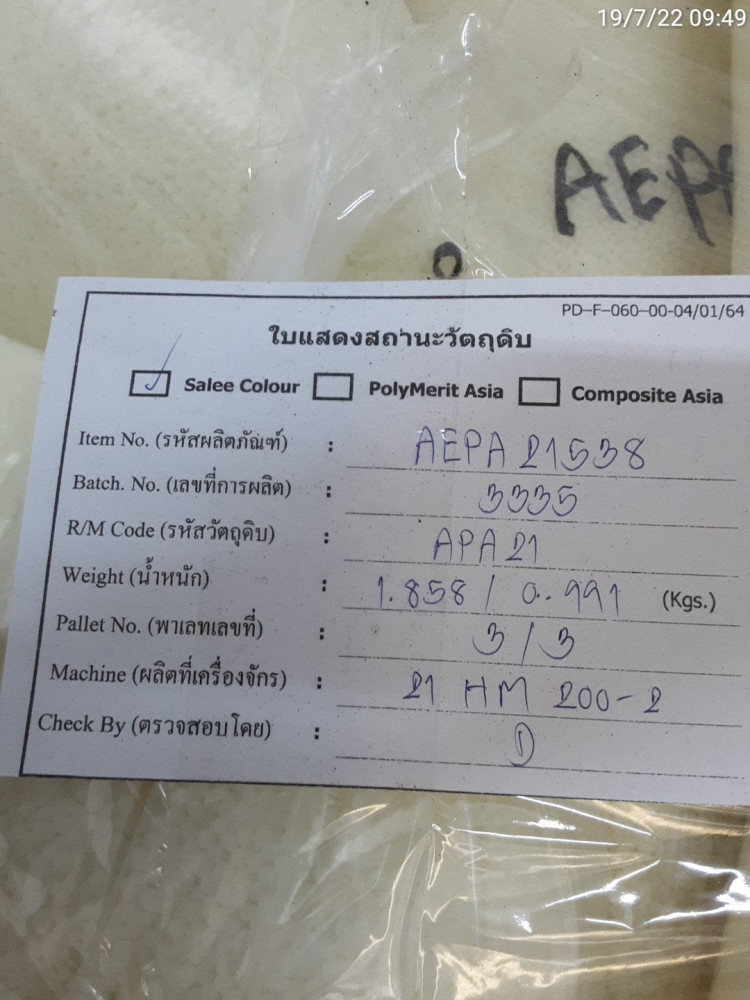 19/7/22 09:49
AEPA
PD-F-060-00-04/01/64
ใบแสดงสถานะวัตถุดิบ
Salee Colour PolyMerit Asia Composite Asia
Item No. (รหัสผลิตภัณฑ์) : AEPA 21538
Batch. No. (เลขที่การผลิต) : 3335
R/M Code (รหัสวัตถุดิบ) : APA 21
Weight (น้ำหนัก) : 1.858 / 0..991 (Kgs.)
Pallet No. (พาเลทเลขที่) : 3/3
Machine (ผลิตที่เครื่องจักร) : 21 HM 200-2
Check By (ตรวจสอบโดย) :